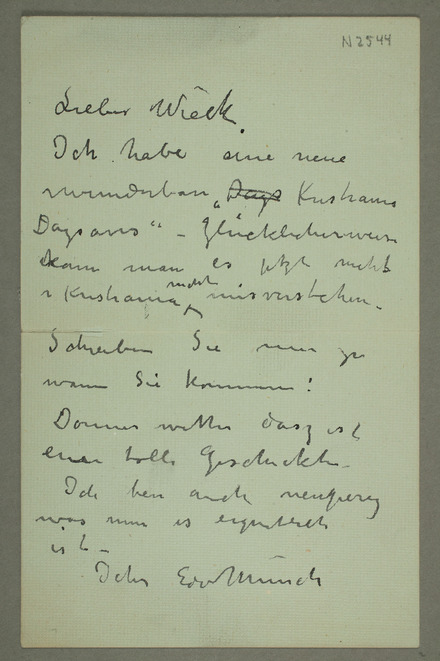 N2544
Lieber Wieck.
Ich habe eine neue
wunderbare „Dags Kristiania
Dagsavis" – Glücklicherweise
kann man es jetzt nicht
i Kristiania nicht misverstehen.
Schreiben Sie mir
wann Sie kommen!
Donner wetter dasz ist
eine tolle Geschichte.
Ich bin auch neugierig
was nun es eigentlich
ist –
Ihr Edv Munch